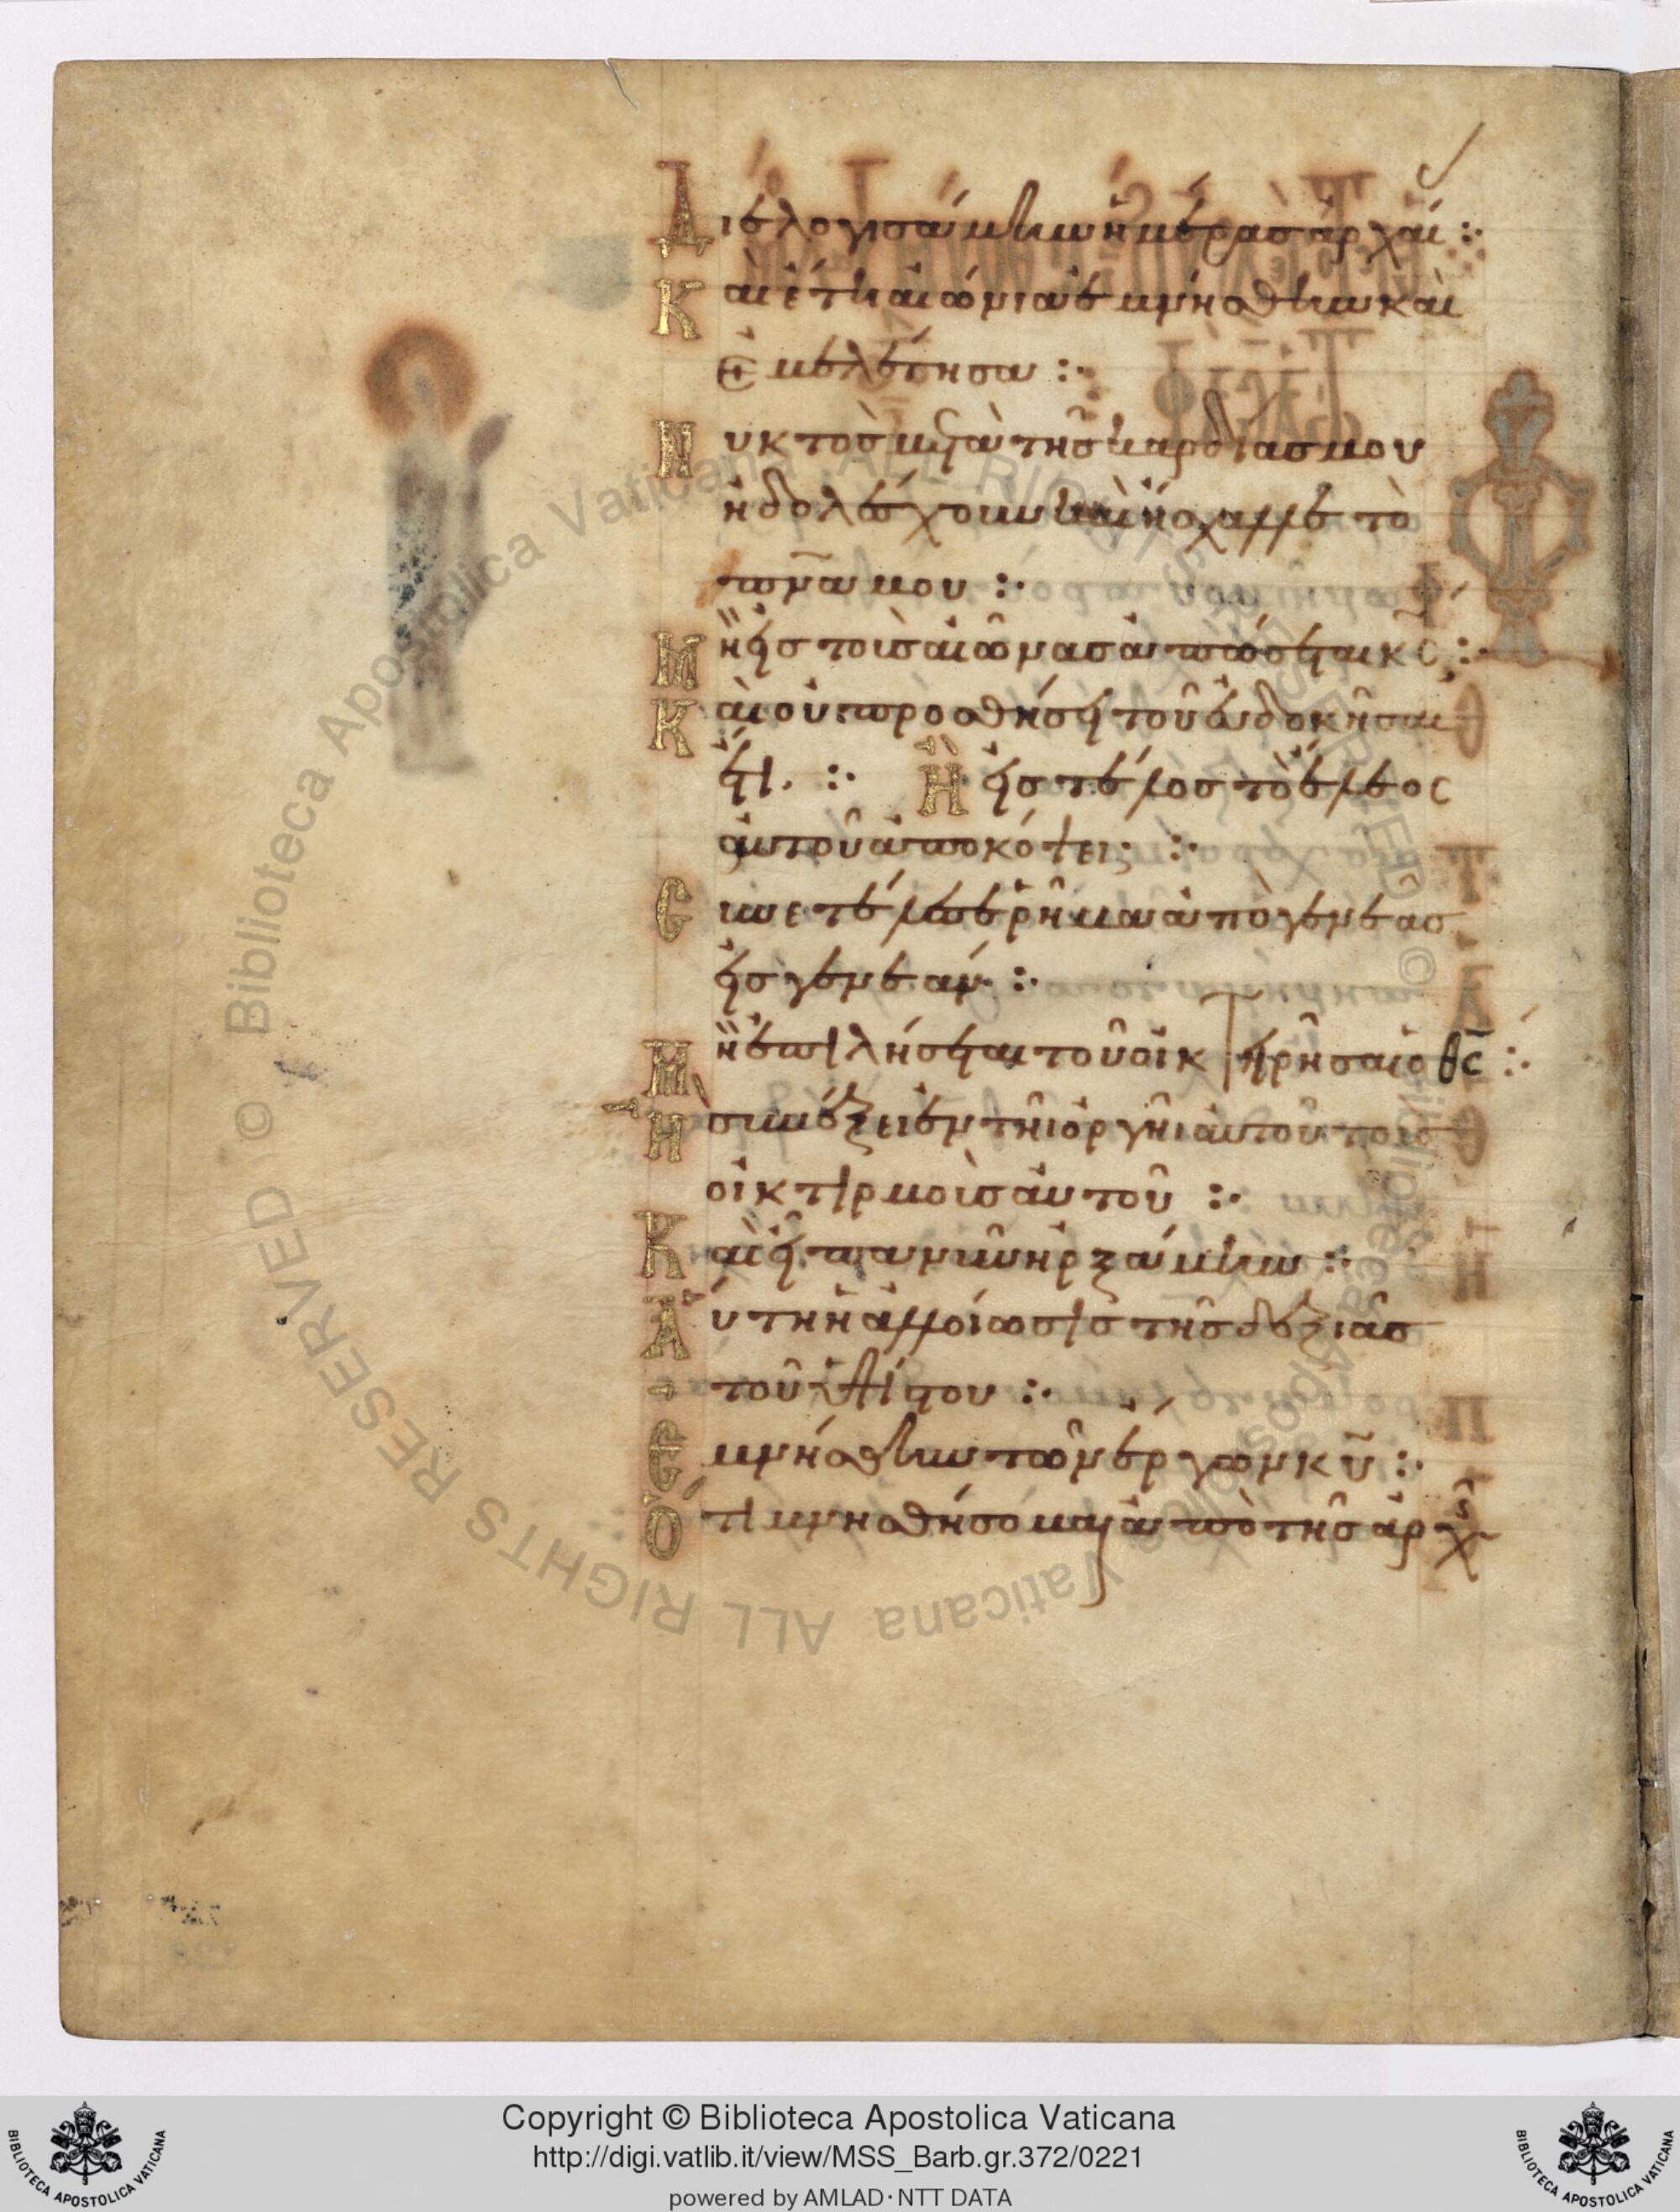 Διελογισάμην ἡμέρας ἀρχαί :·
Καὶ ἔτη αἰώνια ἐμνήσθην καὶ
ἐμελέτησα :·
Νυκτὸς μετὰ τῆς καρδίας μου
ἠδολέσχουν καὶ ἤσχαλλε τὸ
πν̅α μου :·
Μὴ εἰς τοὺς αἰῶνας ἀπώσεται κς̅ :·
Καὶ οὐ προσθήσει τοῦ εὐδοκῆσαι
ἔτι. :· Ἢ εἰς τέλος τὸ ἔλεος
αὐτοῦ ἀποκόψει :·
Συνετέλεσε ῥῆμα ἀπὸ γενεᾶς
εἰς γενεάν :·
Μὴ ἐπιλήσεται τοῦ οἰκτειρῆσαι ὁ θς̅ :·
Ἢ συνέξει ἐν τῆι ὀργῆι αὐτοῦ τοὺς
οἰκτιρμοὺς αὐτοῦ :·
Καὶ εἶπα νῦν ἠρξάμην :·
Αὕτη ἡ ἀλλοίωσις τῆς δεξιᾶς
τοῦ ὑψίστου :·
Ἐμνήσθην τῶν ἔργων κυ̅ :·
Ὅτι μνησθήσομαι ἀπὸ τῆς ἀρχῆς
Copyright © Biblioteca Apostolica Vaticana
http://digi.vatlib.it/view/MSS_Barb.gr.372/0221
powered by AMLAD·NTT DATA
BIBLIOTECA APOSTOLICA VATICANA
BIBLIOTECA APOSTOLICA VATICANA
© Biblioteca Apostolica Vaticana ALL RIGHTS RESERVED
© Biblioteca Apostolica Vaticana ALL RIGHTS RESERVED